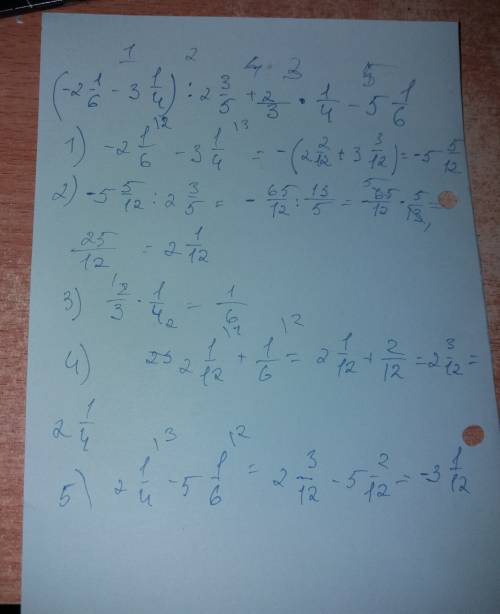 1 2 4 3 5
(-2 1/6 - 3 1/4) : 2 3/5 + 2/3 · 1/4 - 5 1/6
1) -2 1/6 \2 - 3 1/4 \3 = -(2 2/12 + 3 3/12) = -5 5/12
2) -5 5/12 : 2 3/5 = - 65/12 : 13/5 = - 65/12 5 · 5/13 1 =
25/12 = 2 1/12
3) 2/3 \1 · 1/4 2 = 1/6
4) 2 1/12 \1 + 1/6 \2 = 2 1/12 + 2/12 = 2 3/12 =
2 1/4
5) 2 1/4 \3 - 5 1/6 \2 = 2 3/12 - 5 2/12 = -3 1/12